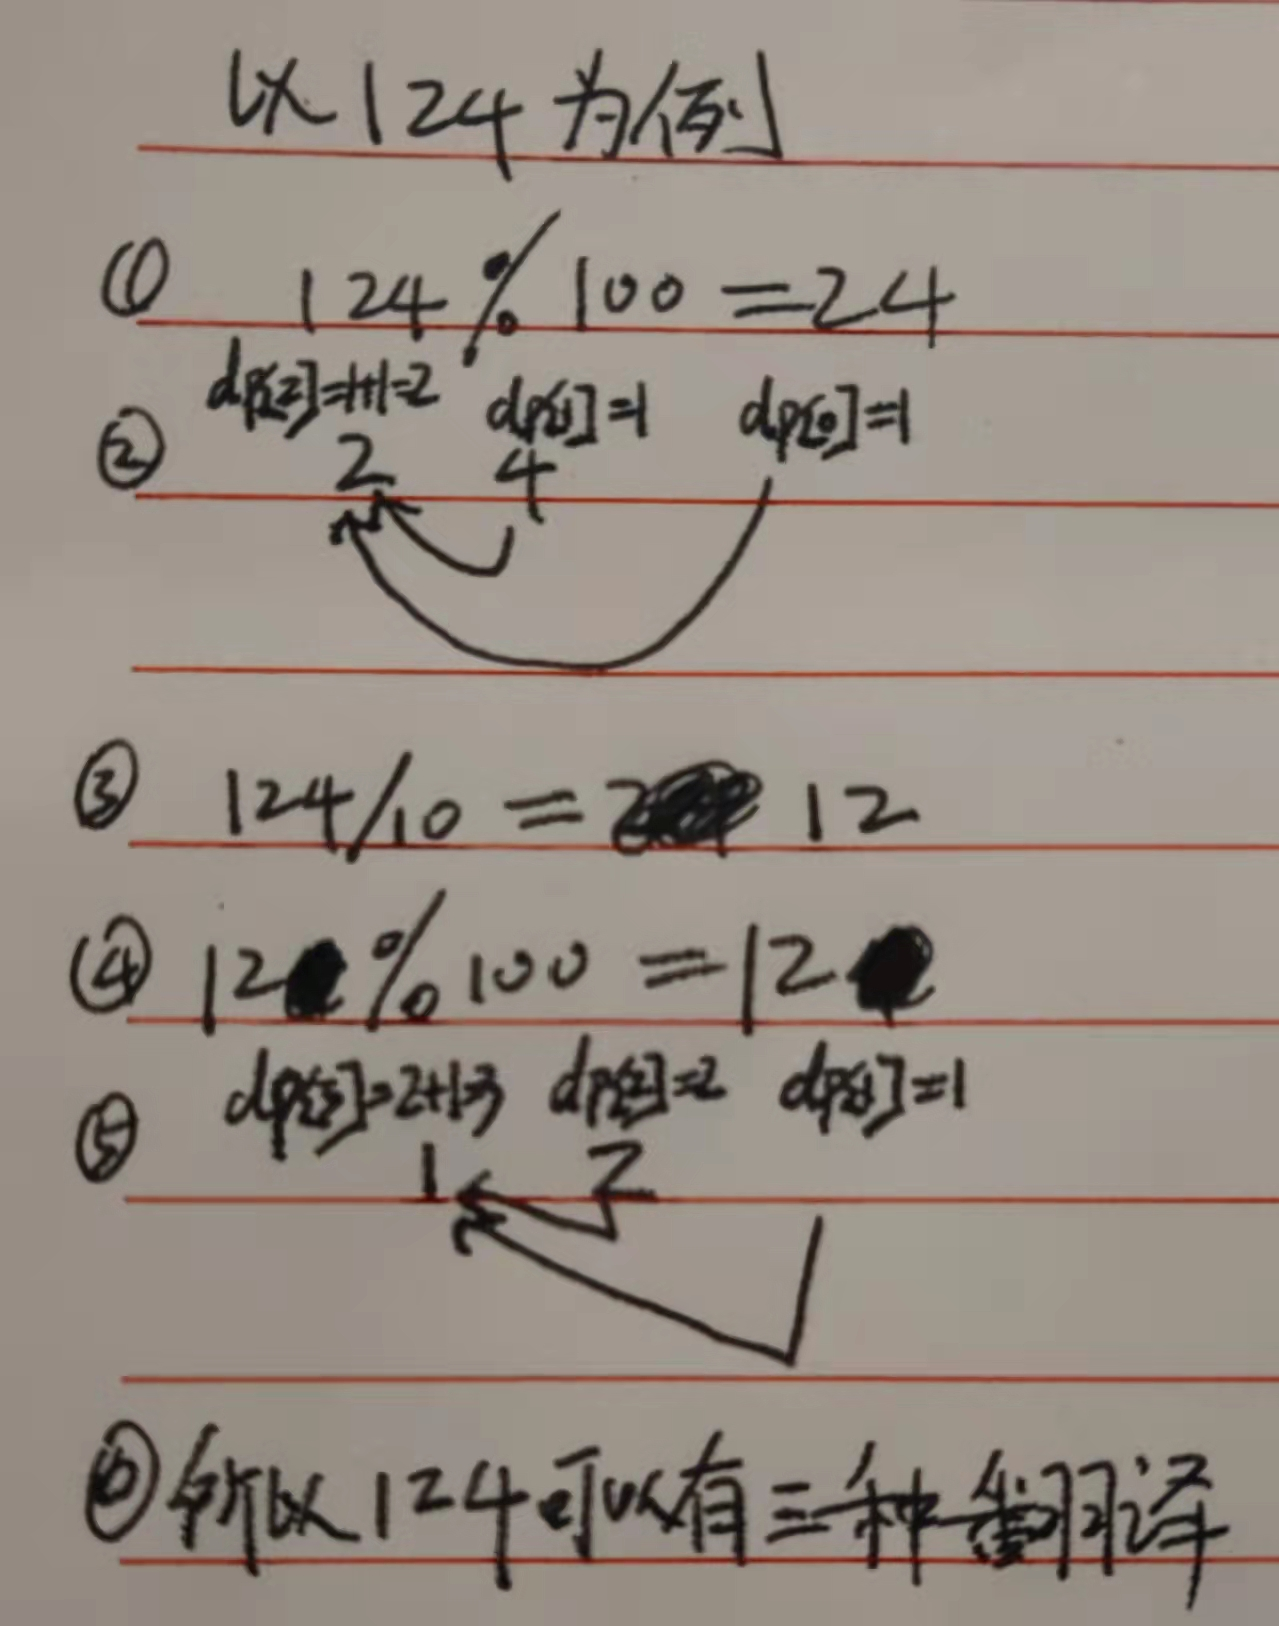 以124为例
① 124 % 100 = 24
dp[2]=1+1=2 dp[1]=1 dp[0]=1
② 2 4
③ 124/10 = 12
④ 12 % 100 = 12
dp[3]=2+1=3 dp[2]=2 dp[1]=1
⑤ 1 2
⑥ 所以124可以有三种翻译